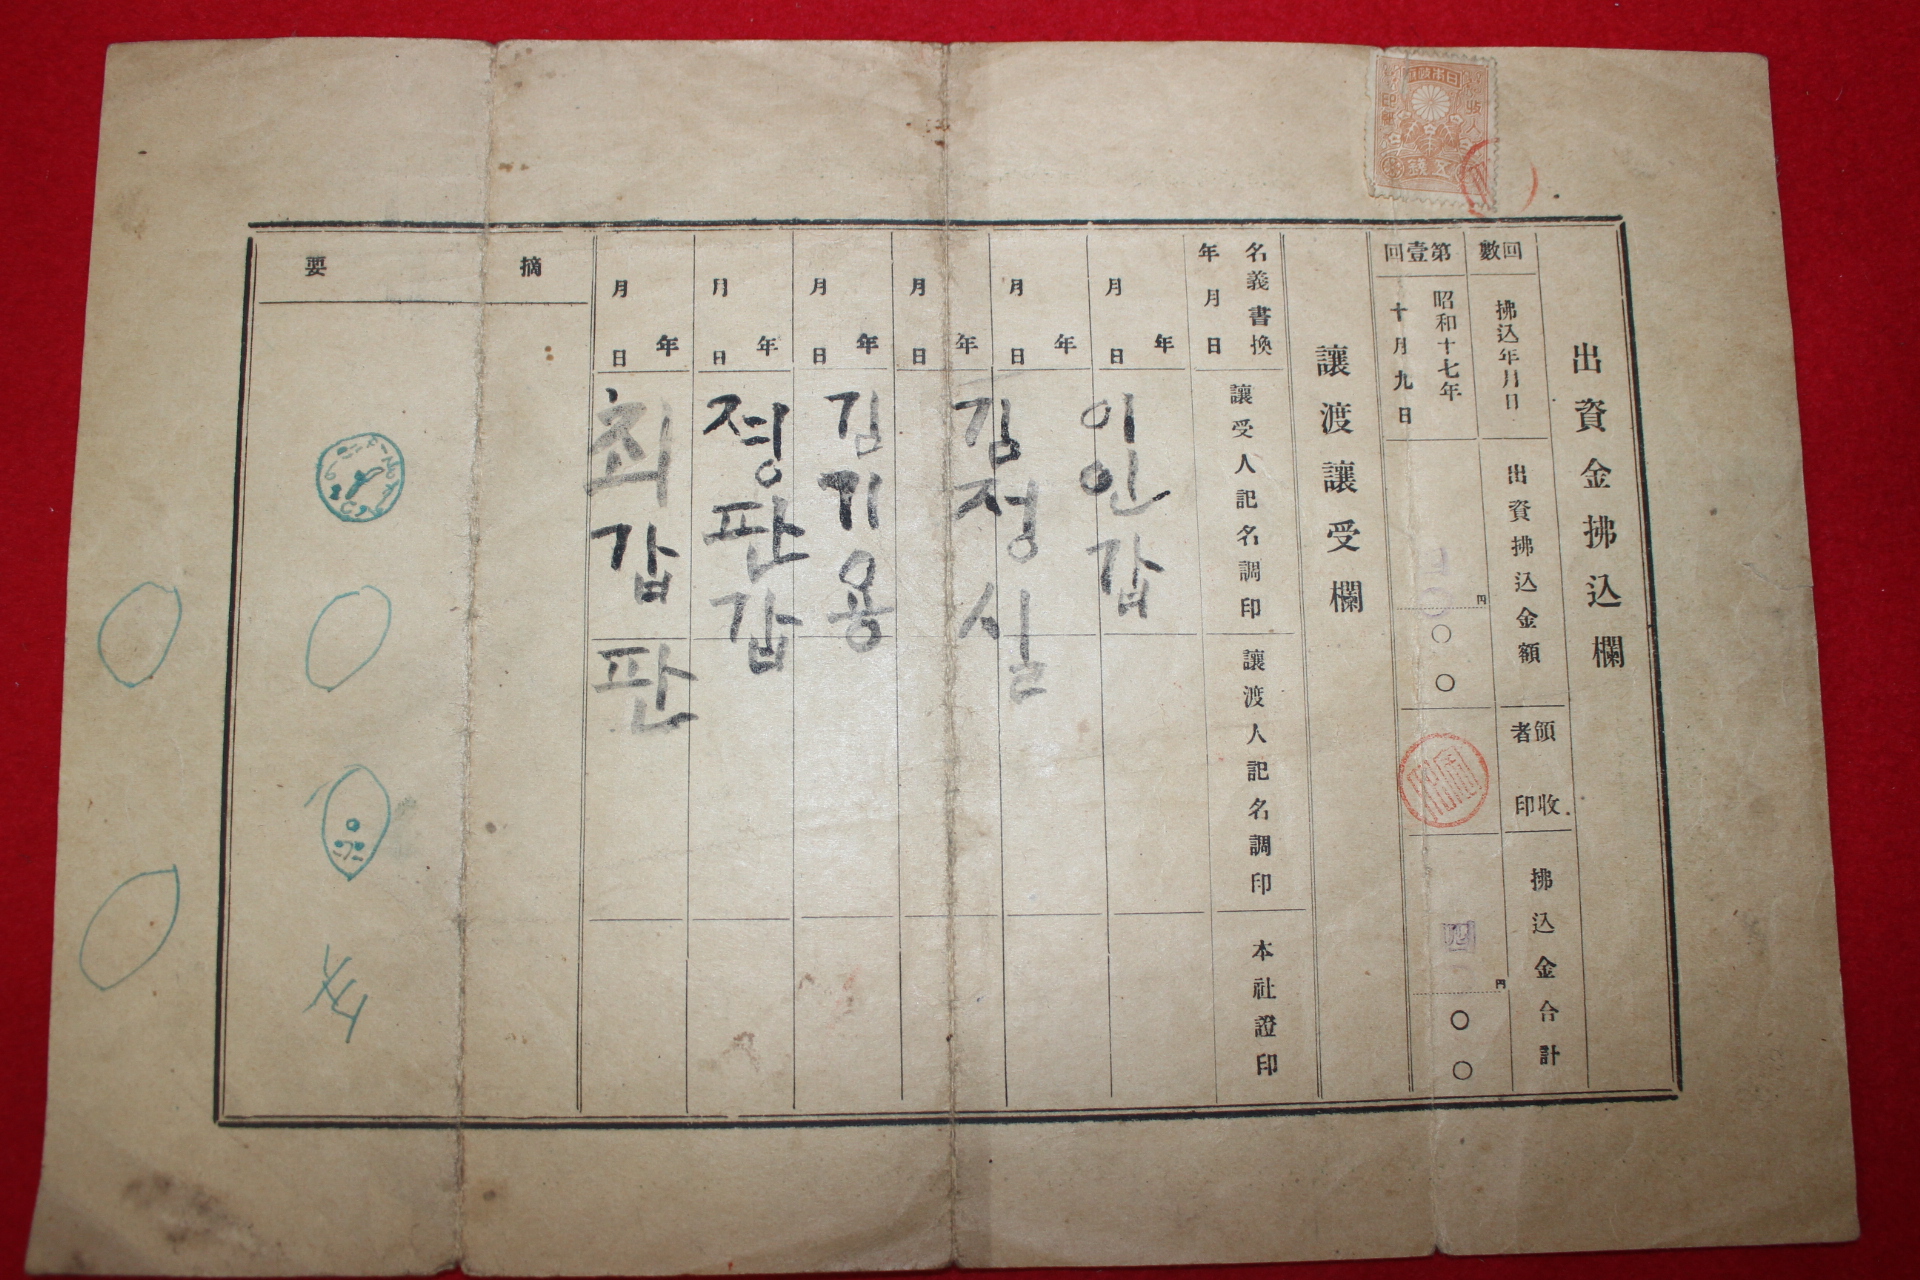 日本政府
收入
印紙
五錢
出資金拂込欄
回數
拂込年月日
出資拂込金額
領收者印
拂込金合計
第壹回
昭和十七年
十月九日
円
〇〇
四
円
〇〇
讓渡讓受欄
名義書換
年月日
讓受人記名調印
讓渡人記名調印
本社證印
年
月日
이인갑
年
月日
김정실
年
月日
年
月日
김기용
年
月日
정판갑
年
月日
최갑판
摘要